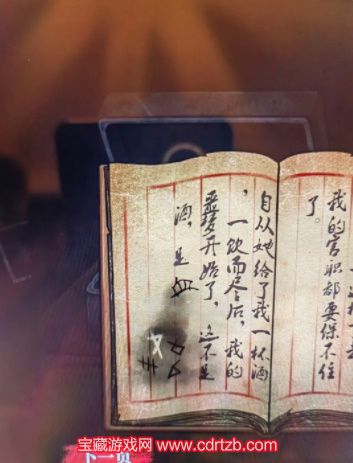 我的官职都要保不住
了。
自从她给了我一杯酒
，一饮而尽后，我的
噩梦开始了，这不是
酒，是血
下一页
宝藏游戏网 www.cdrtzb.com